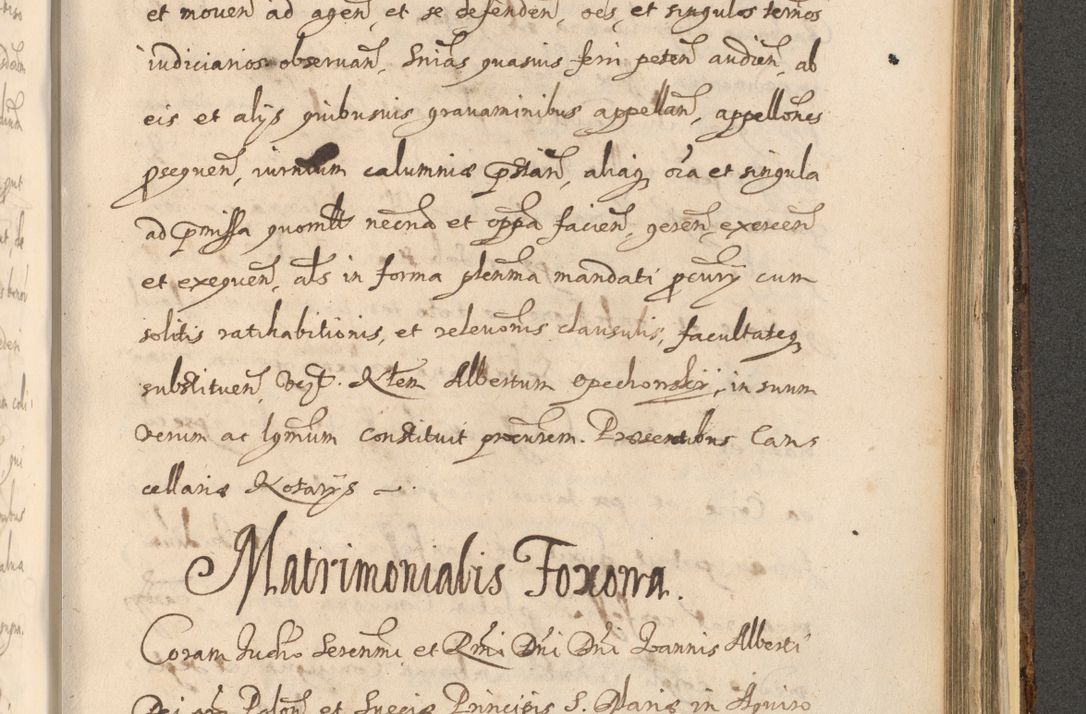 et moven ad agen et se defenden, oes et singulos termos
iudiciarios observan, Snias quasvis ferri peten audien, ab
eis et alys quibusvis gravaminibus appellan, appellones
prosequen, iurndum calumniæ pstan, aliaq oia et singula
ad pmissa quomlt necria et oppa facien, geren, exercen
et exequen, als in forma plenma mandati pcury cum
solitis ratihabitionis, et relevonis clausulis, facultateq
substituen,
Albertum Opechowskij, in suum
verum ac lgmum constituit procurem. Præsentibus Can
cellariæ Notarys
Matrimonialis Foxowa.
Coram Judro Serenmi et Rmi Dni Dni Joannis Alberti
Dei gra Polon et Sueciæ Principis S. Mariæ in Aquiro